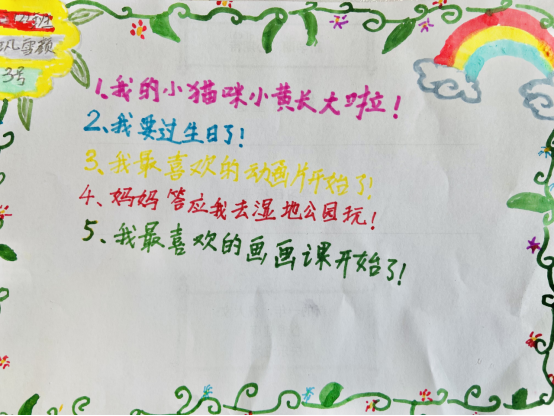 3号
1、我的小猫咪小黄长大啦!
2、我要过生日了!
3、我最喜欢的动画片开始了!
4、妈妈答应我去湿地公园玩!
5、我最喜欢的画画课开始了!